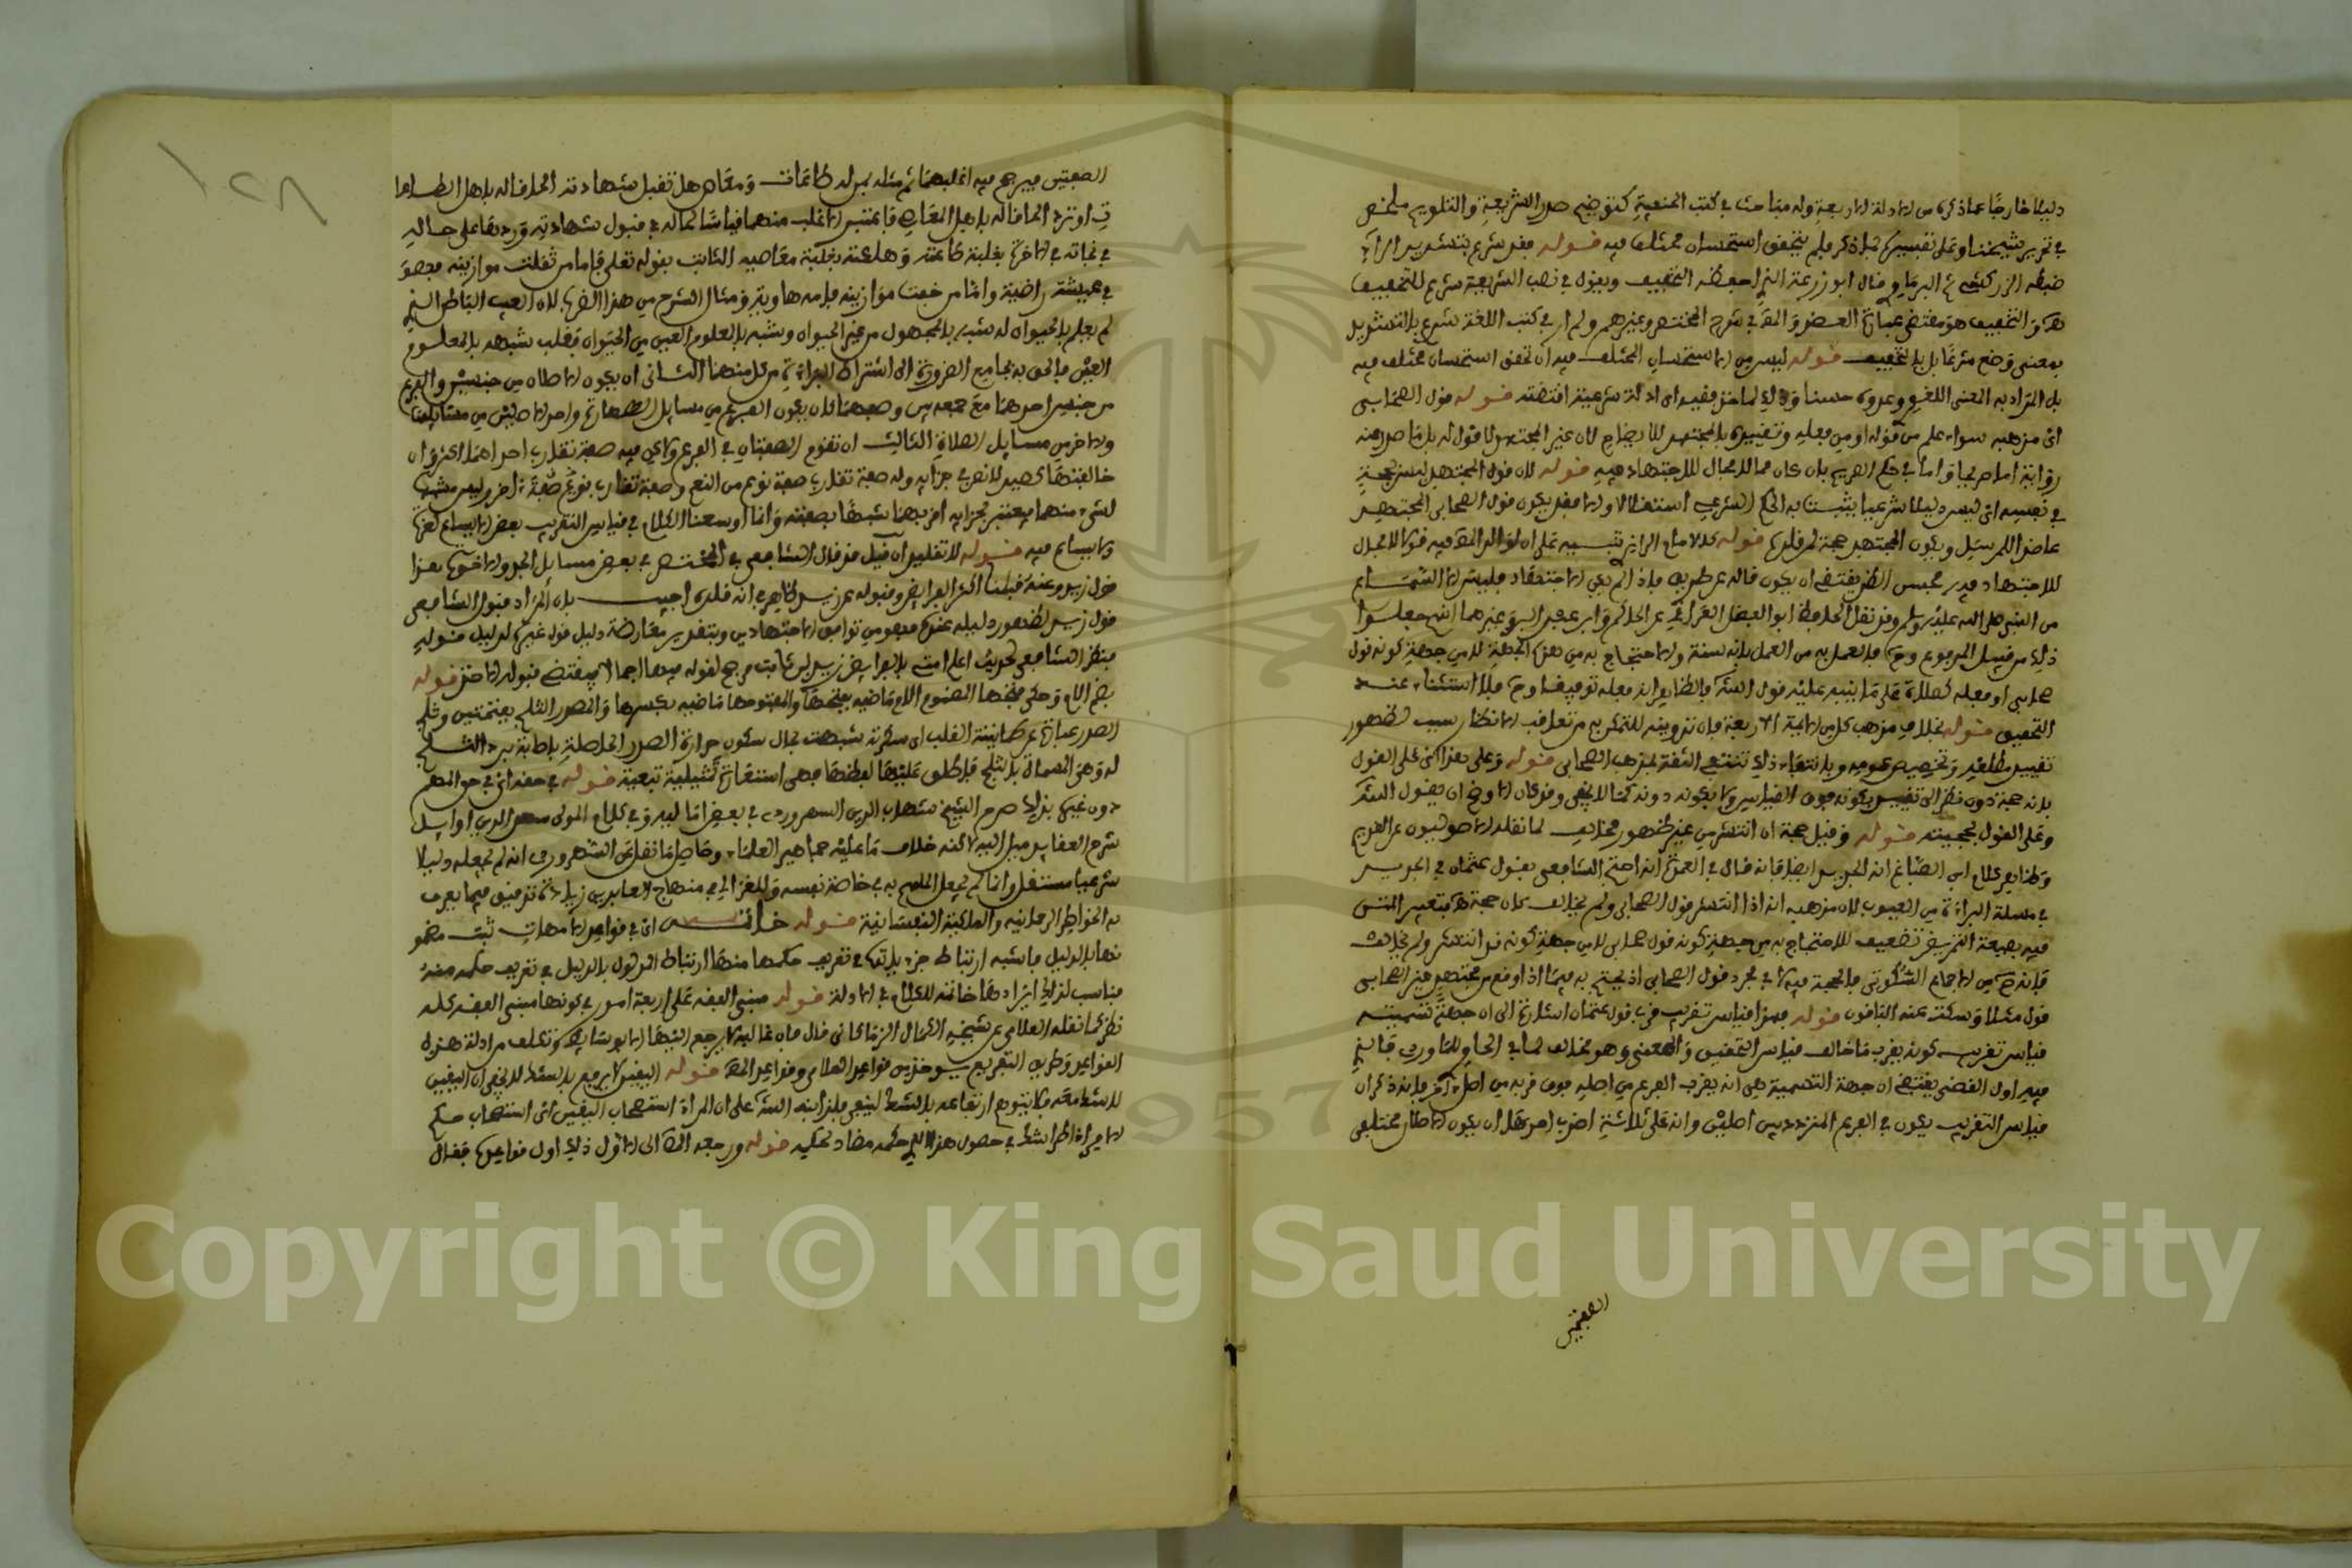 دليلا خارجا عما ذكره من الادلة الاربعة وله مباحث في كتب الحنفية كتوضيح صدر الشريعة والتلويح ملخص
في تحرير شيخنا وعلى تفسيره بما ذكر فلم يتحقق استحسان مختلف فيه قوله فقد شرع بتشديد الراء
ضبطه الزركشي ثم البرماوي قال ابو زرعة الذي احفظه التخفيف ويقول في نصب الشريعة شرع للتخفيف
والتخفيف هو مقتضى عبارة العضد في شرح المختصر وغيرهم ولم ار في كتب اللغة شرع بالتشديد
بمعنى وضع شرعا بل بالتخفيف قوله ليس من الاستحسان المختلف فيه ان تحقق استحسان مختلف فيه
بل المراد به المعنى اللغوي وعدوه حسنا وذلك لماخذ فقهية اي ادلة شرعية اقتضته قوله قول الصحابي
اي مذهبه سواء علم من قوله او من فعله وتقييده بالمجتهد للايضاح لان غير المجتهد لا قول له بل ما صدر منه
رواية اما صريحا واما في حكم الصريح بان كان مما لا مجال للاجتهاد فيه قوله لان قول المجتهد ليس بحجة
في نفسه اي ليس دليلا شرعيا يثبت به الحكم الشرعي استقلالا والا فقد يكون قول الصحابي المجتهد
عاضدا للمرسل ويكون المجتهد حجة لمقلده قوله كلام الرازي تنبيه على ان لوالد المص فيه قولا لا مجال
للاجتهاد فيه محسن الظن يقتضي ان يكون قاله عن طريق فاذا لم يكن الاجتهاد فليس الا السماع
من النبي صلى الله عليه وسلم وقد نقل الحافظ ابو الفضل العراقي عن الحاكم وابن عبد البر وغيرهما انهم جعلوا
ذلك من قبيل المرفوع وح فالعمل به من العمل بالسنة والاحتجاج به من هذه الجهة لا من جهة كونه قول
صحابي او فعله كصلاة علي ما ينبه عليه قول الش فالظاهر انه فعله توقيفا وح فلا استثناء عند
التحقيق قوله بخلاف مذهب كل من الايمة الاربعة فان تدوينه للتمكن به مع تعاقب الانظار سبب لظهور
تقييد مطلقه وتخصيص عمومه وبانتفاء ذلك تنتفي الثقة بمذهب الصحابي قوله وعلى هذا اي على القول
بانه حجة دون نظر الى تقييد بكونه فوق القياس ولا بكونه دونه كما لا يخفى وقد كان الاوضح ان يقول الش
وعلى القول بحجيته قوله وقيل حجة ان انتشر من غير ظهور مخالف لما نقله الاصوليون عن القديم
وكذا في كلام ابن الصباغ انه الجديد ايضا فانه قال في العدة انه احتج الشافعي بقول عثمان في الجديد
في مسئلة البراءة من العيوب لان مذهبه انه اذا انتشر قول الصحابي ولم يخالف كان حجة فتعبير المتن
فيه بصيغة التمريض تضعيف للاحتجاج به من حيثية كونه قول صحابي لا من جهة كونه قد انتشر ولم يخالف
فانه ح من الاجماع السكوتي فالحجة فيه لا في مجرد قول الصحابي اذ يحتج به فيما اذا وقع من مجتهد غير الصحابي
قول مثلا وسكت عنه الباقون قوله فهو اقياس تقريب قرب قول عثمان اشارة الى ان جهة تسميته
قياس تقريب كونه يقرب ما خالف قياس التحقيق والمعنى وهو مخالف لما في الحاوي للماوردي فانه
فيه اول القضى يقتضي ان جهة التسمية هي انه يقرب الفرع من اصله فوق قربه من اصل اخر فانه ذكر ان
قياس التقريب يكون في الفرع المتردد بين اصلين وانه على ثلاثة اضرب احدهما ان يكون الاصلان مختلفي
الصفتين
الصفتين فيرجح فيه اغلبهما ثم مثله بمن له طاعات ومعاص هل تقبل شهادته الحاقا له باهل الطاعا
ت او ترد الحاقا له باهل المعاصي فاعتبر الاغلب منهما قياسا لحاله في قبول شهادته وردها على حاله
في نجاته في الاخرة بغلبة طاعته وهلاكه بغلبة معاصيه الثابت بقوله تعالى فاما من ثقلت موازينه فهو
في عيشة راضية واما من خفت موازينه فامه هاوية ومثال الشرح من هذا الضرب لان العيب الباطن الذي
لم يعلم بالحيوان له شبه بالمجهول من غير الحيوان وشبه بالمعلوم العيب من الحيوان فغلب شبهه بالمعلوم
العيب فالحق به بجامع الضرورة الى اشتراط البراءة من كل منهما الثاني ان يكون الاصلان من جنسين والفرع
من جنس احدهما مع جمعه بين وصفهما كان يكون الفرع من مسايل الطهارة واحد الاصلين من مسايلها
والاخر من مسايل الصلاة الثالث ان تقوم الصفتان في الفرع ولكن فيه صفة تقارب احداهما اكثر وان
خالفتها كصيد لا نص في جزايه وله صفة تقارب صفة نوع من النعم وصفة تقارب نوع اخر وليس مشبه
لشيء منهما فيعتبر بجزايه اقربهما شبها بصفته وانما اوسعنا الكلام في قياس التقريب بعض الايساع لعزة
الايساع فيه قوله لا تقليدا ان قيل قد قال الشافعي في المختصر في بعض مسايل الجد والاخوة هذا
قول زيد وعنه قبلنا اكثر الفرايض وقبوله عن زيد ظاهر في انه قلده اجيب بان المراد قبول الشافعي
قول زيد لظهور دليله عنده فهو من توافق الاجتهادين وبتقدير معارضة دليل قول غيره لدليل قوله
فنظر الشافعي لحديث اعلم امتي بالفرايض زيد بن ثابت مرجح لقوله فيها اجمالا فيقتضي قبوله الاخذ قوله
بضم اللام وحكي فتحها المضموم اللام ماضيه بفتحها والمفتوحها ماضيه بكسرها والمصدر الثلج بفتحتين وثلج
الصدر عبارة عن طمانينة القلب اي سكونه شبهت بحال سكون حرارة الصدر الحاصلة باصابة برد الثلج
له وهي المسماة بالثلج فاطلق عليها لفظها فهي استعارة تمثيلية تبعية قوله في حقه اي في حق الملهم
دون غيره بذلك صرح الشيخ شهاب الدين السهروردي في بعض اماليه وفي كلام المولى سعد الدين اوايل
شرح العقايد ميل اليه لاكنه خلاف ما عليه جماهير العلماء وحاصل ما نقل عن السهروردي انه لم يجعله دليلا
شرعيا مستقلا وانما لم يجعل الملهم به في خاصة نفسه وللغزالي في منهاج العابدين زيادة تدقيق فيما يعرف
به الخواطر الرحمانية والملكية النفسانية قوله خاتمة اي في قواعد الامهات ثبت مضمو
نها بالدليل فاشبه ارتباط جزءياتها في تعريف حكمها منها ارتباط المدلول بالدليل في تعريف حكمه منه
فناسب لذلك ايرادها خاتمة للكلام في الادلة قوله مبنى الفقه على اربعة امور في كونها مبنى الفقه كله
نظر كما نقله العلائي عن شيخه الكمال الزملكاني قال فان غالبه لا يرجع اليها الا بوسايط وتكلف من ادلة هذه
القواعد وطريق التفريع يوخذ من قواعد العلائي وقواعد المص قوله اليقين لا يرفع بالشك لا يخفى ان اليقين
لا شك معه فلا يتوهم ارتفاعه بالشك لينفى فلذا نبه الش على ان المراد استصحاب اليقين اي استصحاب حكم
الامر اذا طرا شك في حصول هذا الذي حكمه مضاد لحكمه قوله ورجعه المص الى الاول ذلك اول قواعده فقال
١٢٨
Copyright © King Saud University
1957